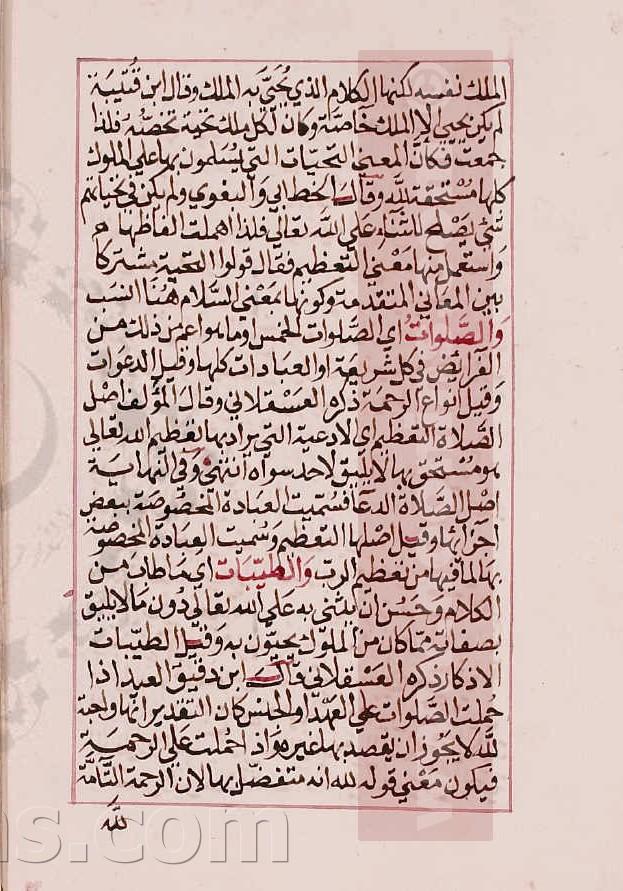 الملك نفسه لكنها الكلام الذي يُحَيّى به الملك وقال ابن قُتَيْبَة
لم يكن يحيي الا الملك خاصّة وكان لكل ملك تحية تخصّه فلذا
جمعت فكانّ المعني التحيّات التي يسلمون بها علي الملوك
كلها مُسْتحقة لله وقال الخطابي والبغوي ولم يكن في تحياتهم
شيء يَصْلح للثناء علي الله تعالي فلذا اهملت الفاظها م
واستعمل منها مَعْني التعظيم فقال قولوا التحية مشتركا
بين المعاني المتقدمة وكونها بمَعْني السلام هُنَا انسَب
والصّلوات اي الصّلوات الخمس او ما هو اعم من ذلك من
الفرايض في كل شريعة او العبادات كلها وقيل الدعوات
وقيل انواع الرحمة ذكره العَسْقلاني وقال المؤلف اصْل
الصّلاة التعظيم اي الادعية التي يراد بها تعظيم الله تعالي
هو مُسْتحق بها لا يليق لاحد سواه انتهي وفي النهاية
اصْل الصّلاة الدعا فسُمّيت العبادة المخصُوصَة ببعض
اجزائها وقيل اصْلها التعظيم وسُميت العبادة المخصوصة
بها لما فيها من تعظيم الرب والطيّبات اي ما طاب من
الكلام وحَسُن ان يثني به علي الله تعالي دُون ما لا يليق
بصفاته ممّا كان من الملوك يحيّون به وقيل الطيّبات
الاذكار ذكره العسْقلاني قال ابن دقيق العيد اذا
حُملت الصّلوات علي العَهْد او الجنس كان التقدير انّها واجبة
لله لا يجوز ان يقصد بها غيره واذا حُملت علي الرحمة
فيكون مَعْني قوله لله انه متفضّل بها لان الرحمة التامّة
لله
ns.com